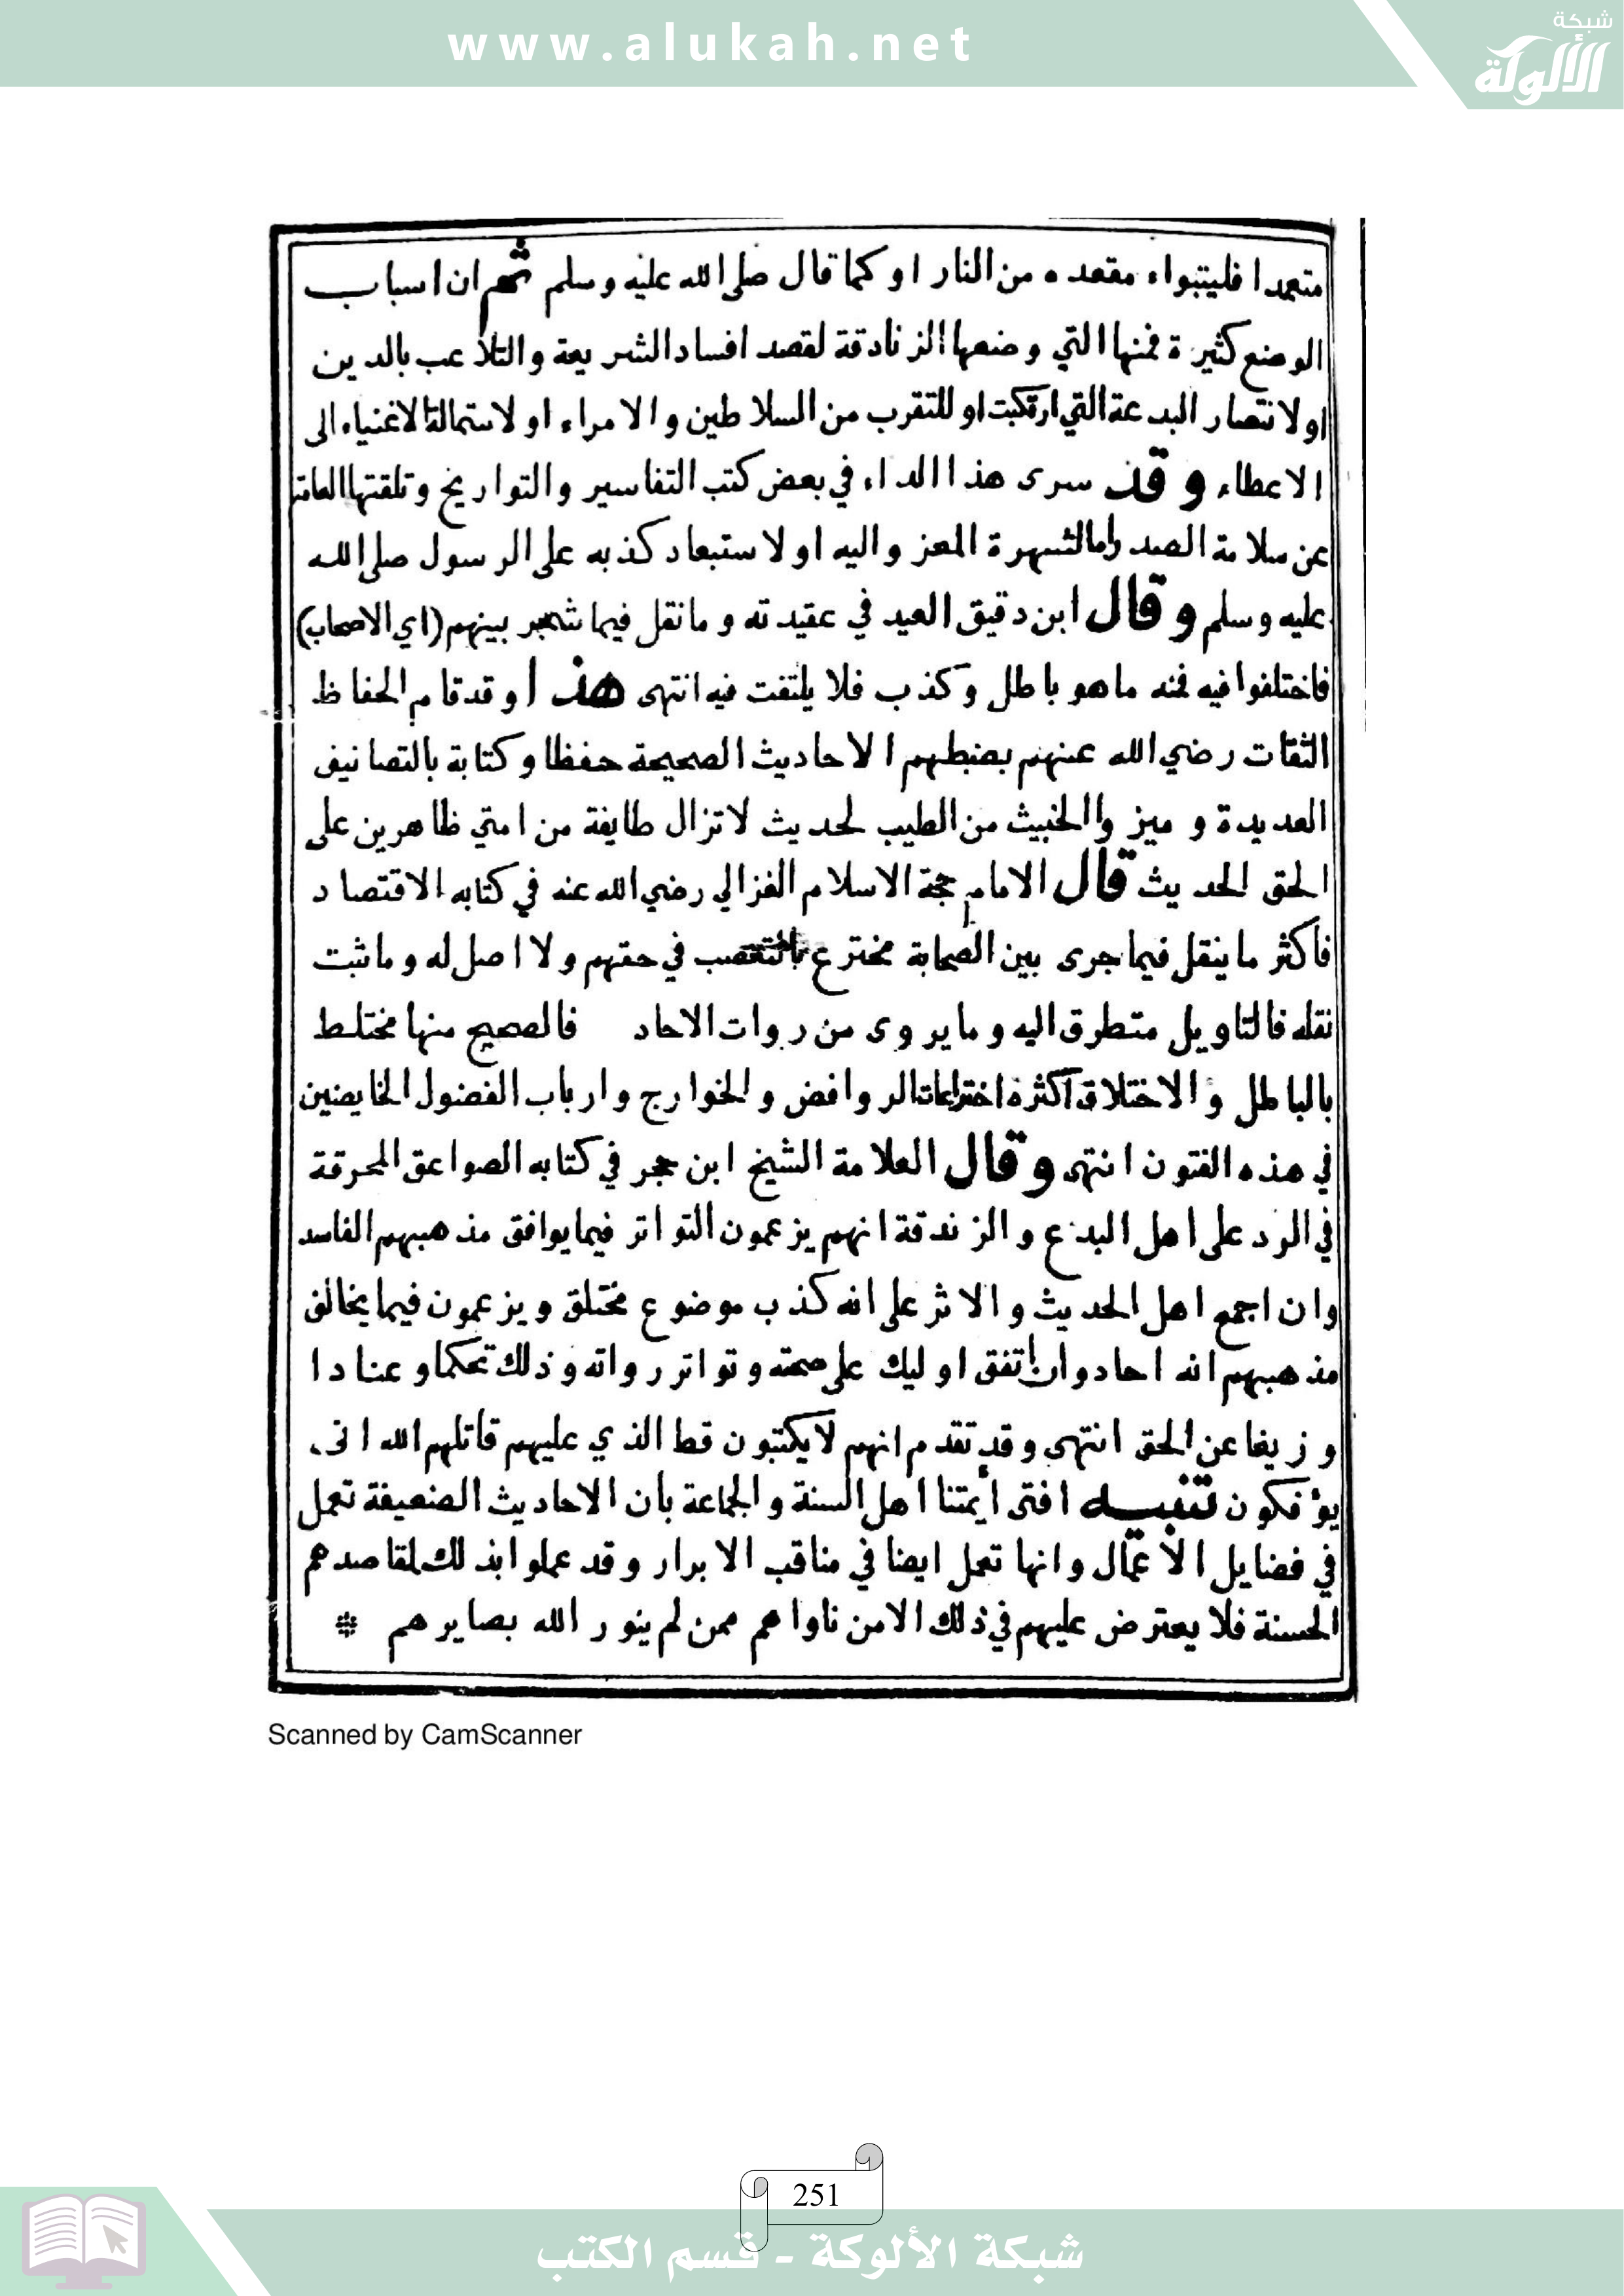 www.alukah.net
شبكة
الألوكة
متعمدا فليتبواء مقعده من النار او كما قال صلى الله عليه وسلم ثم ان اسباب
الوضع كثيرة فمنها التي وضعها الزنادقة لقصد افساد الشريعة والتلاعب بالدين
او لانتصار البدعة التي ارتكبت او للتقرب من السلاطين والامراء او لاستمالة الاغنياء الى
الاعطاء وقد سرى هذا الداء في بعض كتب التفاسير والتواريخ وتلقتها العامة
عن سلامة الصدر اما لشهرة المعزو اليه او لاستبعاد كذبه على الرسول صلى الله
عليه وسلم وقال ابن دقيق العيد في عقيدته وما نقل فيما شجر بينهم (اي الاصحاب)
فاختلفوا فيه فمنه ما هو باطل وكذب فلا يلتفت فيه انتهى هذا وقد قام الحفاظ
الثقات رضي الله عنهم بضبطهم الاحاديث الصحيحة حفظا وكتابة بالتصانيف
العديدة وميزوا الخبيث من الطيب لحديث لا تزال طايفة من امتي ظاهرين على
الحق الحديث قال الامام حجة الاسلام الغزالي رضي الله عنه في كتابه الاقتصاد
فأكثر ما ينقل فيما جرى بين الصحابة مخترع بالتعصب في حقهم ولا اصل له وما ثبت
نقله فالتاويل متطرق اليه وما يروى من روات الاحاد فالصحيح منها مختلط
بالباطل والاختلاق أكثره اختراعات الروافض والخوارج وارباب الفضول الخايضين
في هذه الفتون انتهى وقال العلامة الشيخ ابن حجر في كتابه الصواعق المحرقة
في الرد على اهل البدع والزندقة انهم يزعمون التواتر فيما يوافق مذهبهم الفاسد
وان اجمع اهل الحديث والاثر على انه كذب موضوع مختلق ويزعمون فيما يخالف
مذهبهم انه احاد وان اتفق اوليك على صحته وتواتر رواته وذلك تحكما وعنادا
وزيغا عن الحق انتهى وقد تقدم انهم لا يكتبون قط الذي عليهم قاتلهم الله انى
يؤفكون تنبيه افتى أيمتنا اهل السنة والجماعة بان الاحاديث الضعيفة تعمل
في فضايل الأعمال وانها تعمل ايضا في مناقب الابرار وقد عملوا بذلك لمقاصدهم
الحسنة فلا يعترض عليهم في ذلك الا من ناواهم ممن لم ينور الله بصايرهم #
Scanned by CamScanner
251
شبكة الألوكة - قسم الكتب